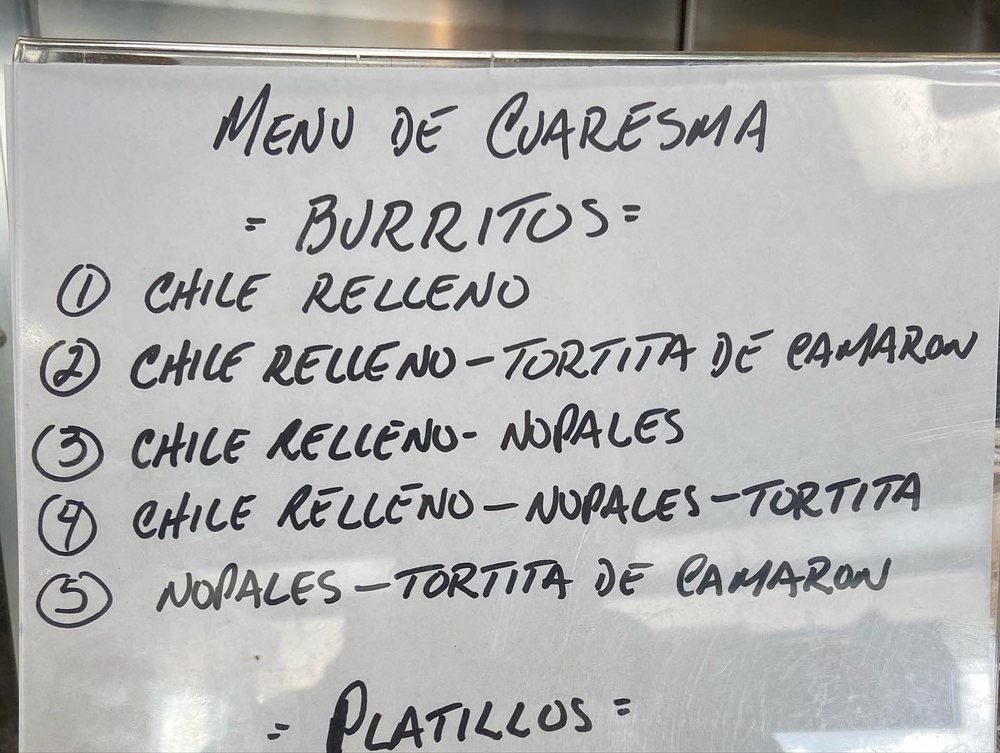 MENU DE CUARESMA
= BURRITOS =
1 CHILE RELLENO
2 CHILE RELLENO - TORTITA DE CAMARON
3 CHILE RELLENO - NOPALES
4 CHILE RELLENO - NOPALES - TORTITA
5 NOPALES - TORTITA DE CAMARON
= PLATILLOS =